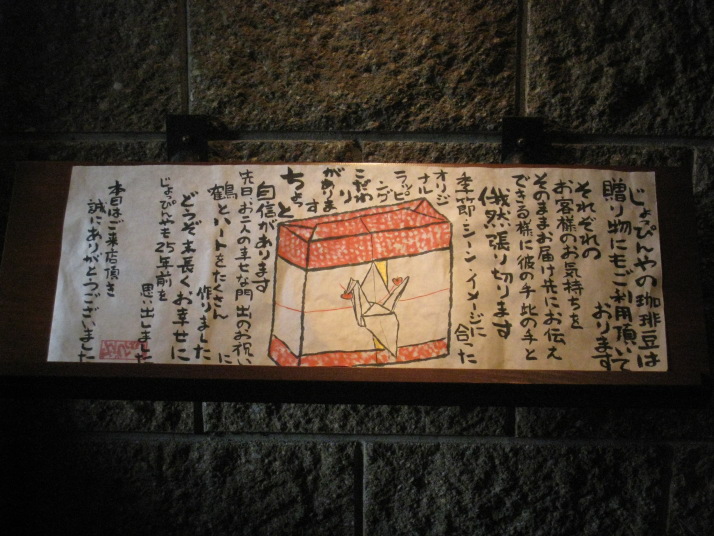 じょぴんやの珈琲豆は
贈り物にもご利用頂いて
おります
それぞれの
お客様のお気持ちを
そのままお届け先にお伝え
できる様に彼の手此の手と
俄然張り切ります
季節・シーン・イメージに
合った
オリジナル
ラッピング
こだわり
があります
ちょっと
自信があります
先日お二人の幸せな門出のお祝いに
鶴とハートをたくさん
作りました
どうぞ末長くお幸せに
じょぴんやも25年前を
思い出しました
本日はご来店頂き
誠にありがとうございました